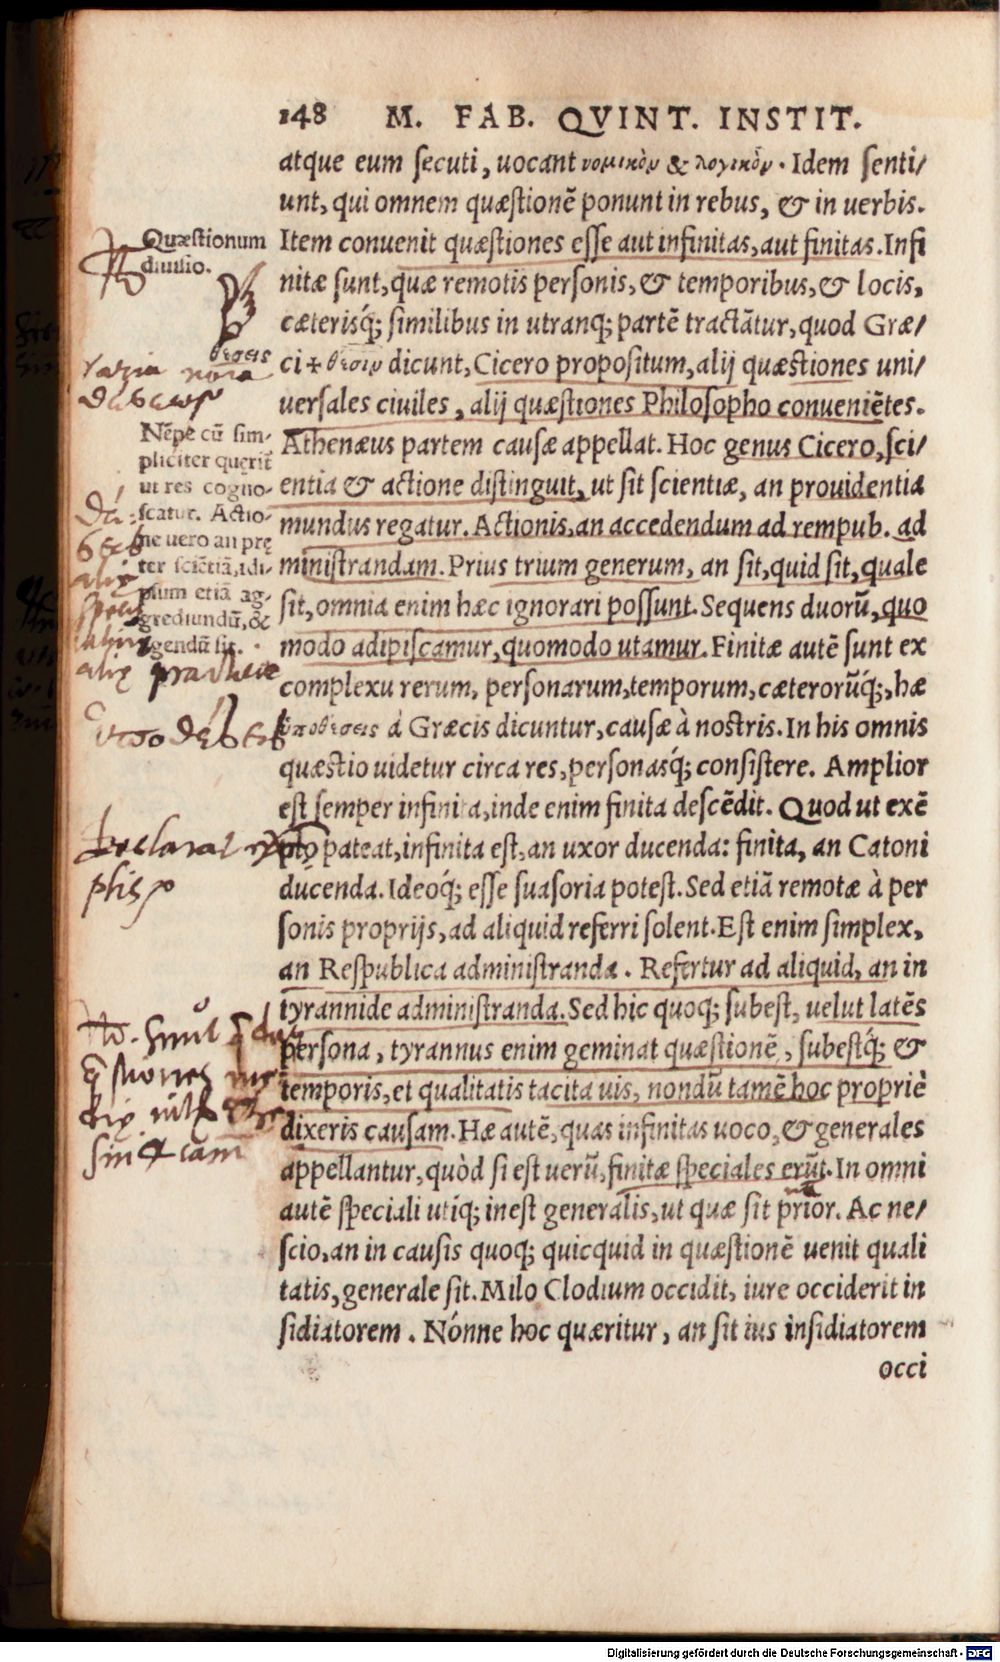 148 M. FAB. QVINT. INSTIT.
atque eum secuti, uocant νομικὸν & λογικὸν. Idem senti/
unt, qui omnem quæstionẽ ponunt in rebus, & in uerbis.
Item conuenit quæstiones esse aut infinitas, aut finitas. Infi
nitæ sunt, quæ remotis personis, & temporibus, & locis,
cæterisq́; similibus in utranq; partẽ tractãtur, quod Græ/
ci + θέσιν dicunt, Cicero propositum, alij quæstiones uni/
uersales ciuiles, alij quæstiones Philosopho conueniẽtes.
Athenæus partem causæ appellat. Hoc genus Cicero, sci/
entia & actione distinguit, ut sit scientiæ, an prouidentia
mundus regatur. Actionis, an accedendum ad rempub. ad
ministrandam. Prius trium generum, an sit, quid sit, quale
sit, omnia enim hæc ignorari possunt. Sequens duorũ, quo
modo adipiscamur, quomodo utamur. Finitæ autẽ sunt ex
complexu rerum, personarum, temporum, cæterorũq́;, hæ
ὑποθέσεις à Græcis dicuntur, causæ à nostris. In his omnis
quæstio uidetur circa res, personasq́; consistere. Amplior
est semper infinita, inde enim finita descẽdit. Quod ut exẽ
plo pateat, infinita est, an uxor ducenda: finita, an Catoni
ducenda. Ideoq́; esse suasoria potest. Sed etiã remotæ à per
sonis proprijs, ad aliquid referri solent. Est enim simplex,
an Respublica administranda. Refertur ad aliquid, an in
tyrannide administranda. Sed hic quoq; subest, uelut latẽs
persona, tyrannus enim geminat quæstionẽ, subestq́; &
temporis, et qualitatis tacita uis, nondũ tamẽ hoc propriè
dixeris causam. Hæ autẽ, quas infinitas uoco, & generales
appellantur, quòd si est uerũ, finitæ speciales erũt. In omni
autẽ speciali utiq; inest generalis, ut quæ sit prior. Ac ne/
scio, an in causis quoq; quicquid in quæstionẽ uenit quali
tatis, generale sit. Milo Clodium occidit, iure occiderit in
sidiatorem. Nónne hoc quæritur, an sit ius insidiatorem
occi
Quæstionum
diuisio.
θεσεις
varia
Nẽpe cũ sim-
pliciter querit̃
ut res cogno-
scatur. Actio-
ne uero an prę
ter sciẽtiã, idi-
psum etiã ag-
grediundũ, &
agendũ sit.
alię
alię
Declarat
Digitalisierung gefördert durch die Deutsche Forschungsgemeinschaft - DFG